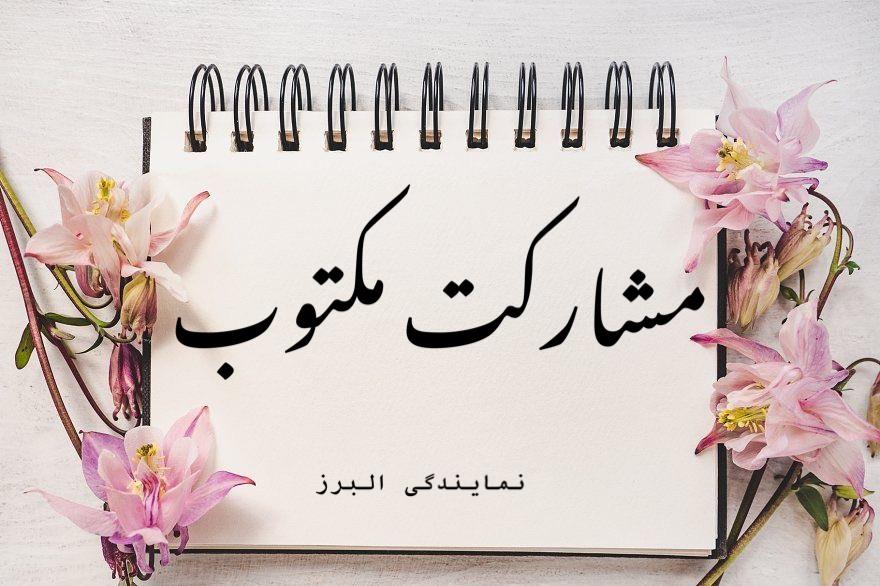 مشارکت مکتوب
نمایندگی البرز